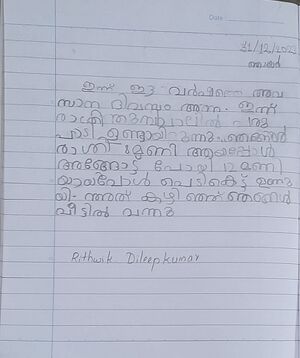 Date
31/12/2023
ഞായർ
ഇന്ന് ഈ വർഷത്തെ അവ
സാന ദിവസം ആണ്. ഇന്ന്
രാത്രി
പാടി ഉണ്ടായിരുന്നു. ഞങ്ങൾ
രാത്രി 8 മണി ആയപ്പോൾ
അങ്ങോട്ട് പോയി 12 മണി
യായപ്പോൾ വെടികെട്ട് ഉണ്ടാ
യി. അത് കഴിഞ്ഞ് ഞങ്ങൾ
വീട്ടിൽ വന്നു
Rithwik Dileepkumar